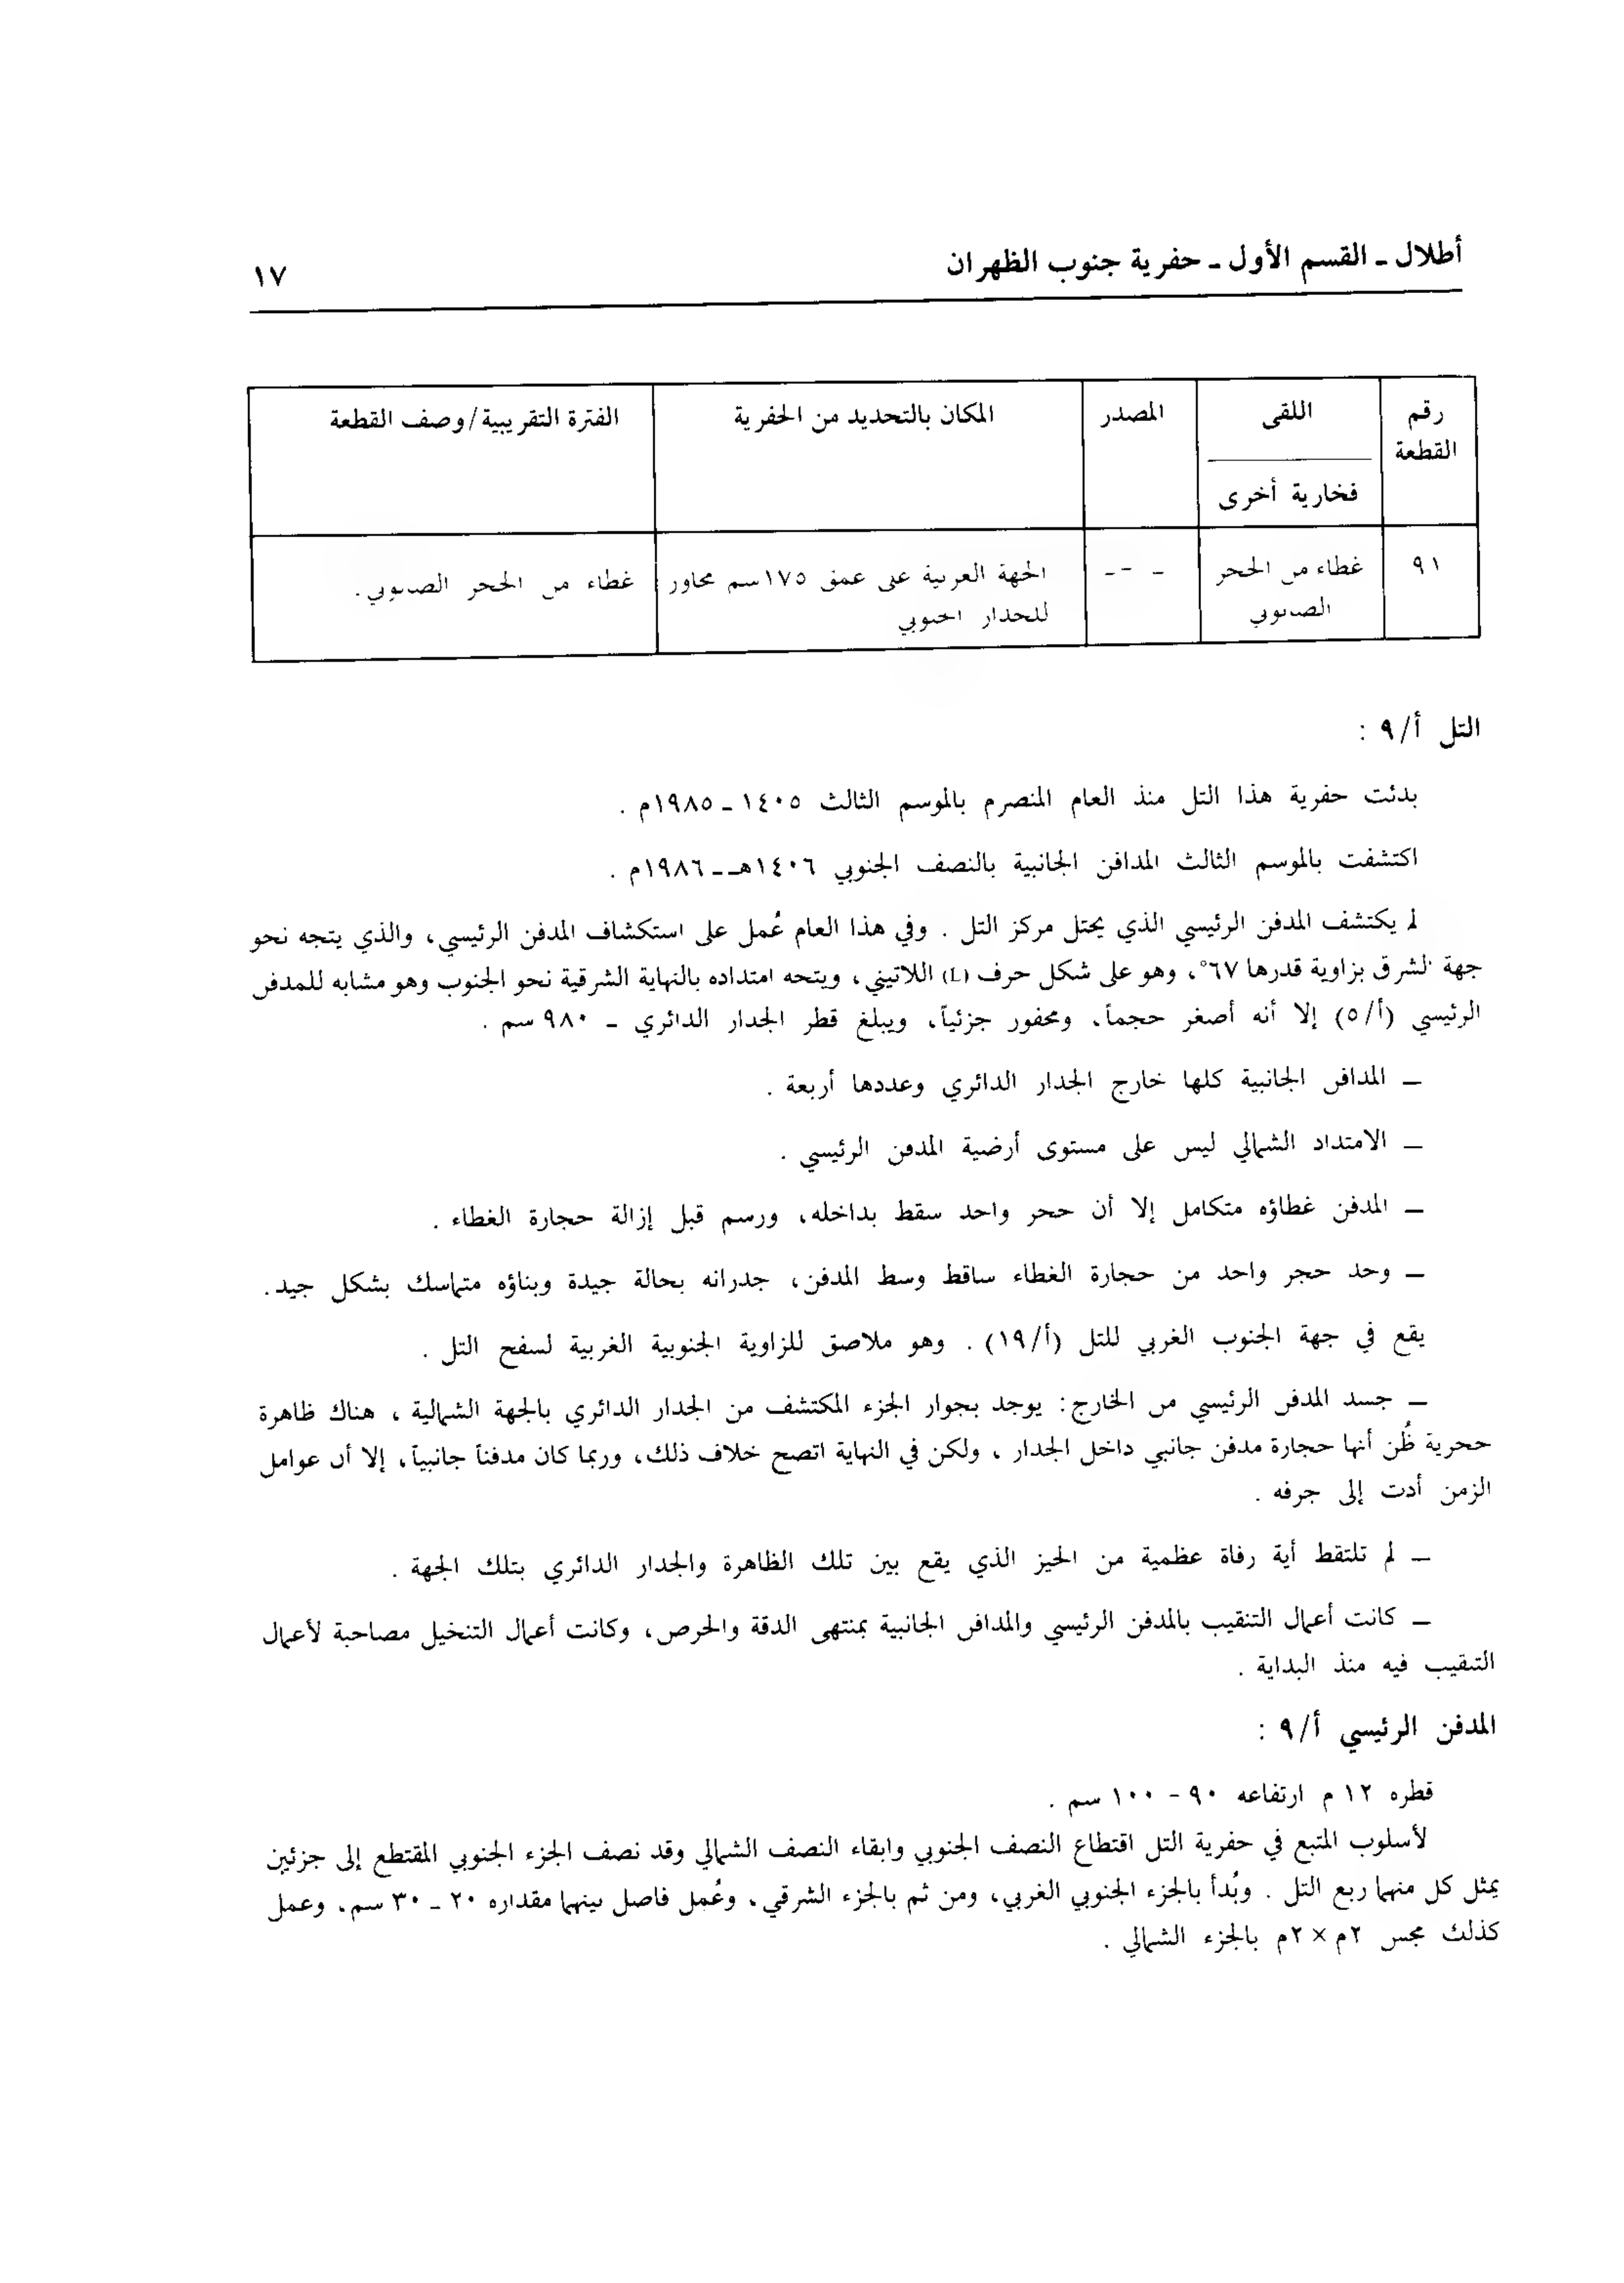 أطلال ـ القسم الأول ـ حفرية جنوب الظهران
١٧
رقم القطعة
اللقى
فخارية أخرى
المصدر
المكان بالتحديد من الحفرية
الفترة التقريبية/وصف القطعة
٩١
غطاء من الحجر
الصابوني
- -- -
الجهة الغربية على عمق ١٧٥سم مجاور
للجدار الجنوبي
غطاء من الحجر الصابوني.
التل أ/٩ :
بدئت حفرية هذا التل منذ العام المنصرم بالموسم الثالث ١٤٠٥ ـ ١٩٨٥م .
اكتشفت بالموسم الثالث المدافن الجانبية بالنصف الجنوبي ١٤٠٦هـ ـ ١٩٨٦م .
لم يكتشف المدفن الرئيسي الذي يحتل مركز التل . وفي هذا العام عُمل على استكشاف المدفن الرئيسي، والذي يتجه نحو
جهة الشرق بزاوية قدرها ٦٧°، وهو على شكل حرف (L) اللاتيني، ويتجه امتداده بالنهاية الشرقية نحو الجنوب وهو مشابه للمدفن
الرئيسي (أ/٥) إلا أنه أصغر حجماً، ومحفور جزئياً، ويبلغ قطر الجدار الدائري ـ ٩٨٠ سم .
ـ المدافن الجانبية كلها خارج الجدار الدائري وعددها أربعة .
ـ الامتداد الشمالي ليس على مستوى أرضية المدفن الرئيسي .
ـ المدفن غطاؤه متكامل إلا أن حجر واحد سقط بداخله، ورسم قبل إزالة حجارة الغطاء .
ـ وجد حجر واحد من حجارة الغطاء ساقط وسط المدفن، جدرانه بحالة جيدة وبناؤه متماسك بشكل جيد.
يقع في جهة الجنوب الغربي للتل (أ/١٩) . وهو ملاصق للزاوية الجنوبية الغربية لسفح التل .
ـ جسد المدفن الرئيسي من الخارج: يوجد بجوار الجزء المكتشف من الجدار الدائري بالجهة الشمالية ، هناك ظاهرة
حجرية ظُن أنها حجارة مدفن جانبي داخل الجدار ، ولكن في النهاية اتضح خلاف ذلك، وربما كان مدفناً جانبياً، إلا أن عوامل
الزمن أدت إلى جرفه .
ـ لم تلتقط أية رفاة عظمية من الحيز الذي يقع بين تلك الظاهرة والجدار الدائري بتلك الجهة .
ـ كانت أعمال التنقيب بالمدفن الرئيسي والمدافن الجانبية بمنتهى الدقة والحرص، وكانت أعمال التنخيل مصاحبة لأعمال
التنقيب فيه منذ البداية .
المدفن الرئيسي أ/٩ :
قطره ١٢ م ارتفاعه ٩٠ - ١٠٠ سم .
لأسلوب المتبع في حفرية التل اقتطاع النصف الجنوبي وابقاء النصف الشمالي وقد نصف الجزء الجنوبي المقتطع إلى جزئين
يمثل كل منهما ربع التل . وبُدأ بالجزء الجنوبي الغربي، ومن ثم بالجزء الشرقي، وعُمل فاصل بينهما مقداره ٢٠ ـ ٣٠ سم، وعمل
كذلك مجس ٢م × ٢م بالجزء الشمالي .